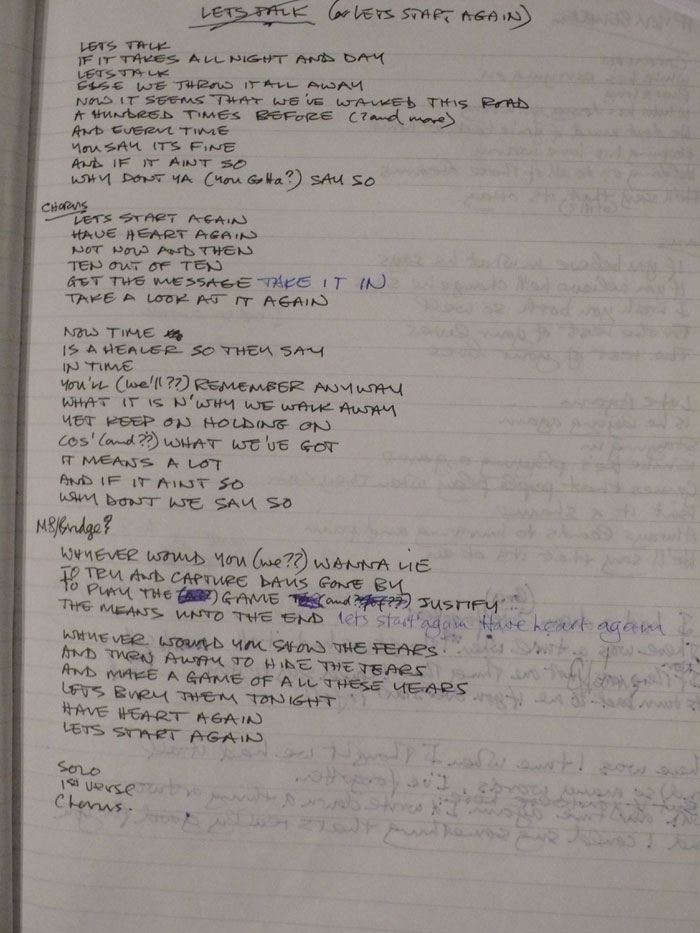 LETS TALK (or LETS START AGAIN)
LETS TALK
IF IT TAKES ALL NIGHT AND DAY
LETS TALK
ELSE WE THROW IT ALL AWAY
NOW IT SEEMS THAT WE'VE WALKED THIS ROAD
A HUNDRED TIMES BEFORE (? and more)
AND EVERY TIME
YOU SAY ITS FINE
AND IF IT AINT SO
WHY DONT YA (You Gotta?) SAY SO
CHORUS
LETS START AGAIN
HAVE HEART AGAIN
NOT NOW AND THEN
TEN OUT OF TEN
GET THE MESSAGE TAKE IT IN
TAKE A LOOK AT IT AGAIN
NOW TIME
IS A HEALER SO THEY SAY
IN TIME
YOU'LL (we'll??) REMEMBER ANYWAY
WHAT IT IS N'WHY WE WALK AWAY
YET KEEP ON HOLDING ON
COS' (and??) WHAT WE'VE GOT
IT MEANS A LOT
AND IF IT AINT SO
WHY DONT WE SAY SO
M8/Bridge?
WHYEVER WOULD YOU (we??) WANNA LIE
TO TRY AND CAPTURE DAYS GONE BY
TO PLAY THE GAME (and ??) JUSTIFY
THE MEANS UNTO THE END lets start again Have heart again
WHYEVER WOULD YOU SHOW THE FEARS
AND TURN AWAY TO HIDE THE TEARS
AND MAKE A GAME OF ALL THESE YEARS
LETS BURY THEM TONIGHT
HAVE HEART AGAIN
LETS START AGAIN
SOLO
1st VERSE
CHORUS.